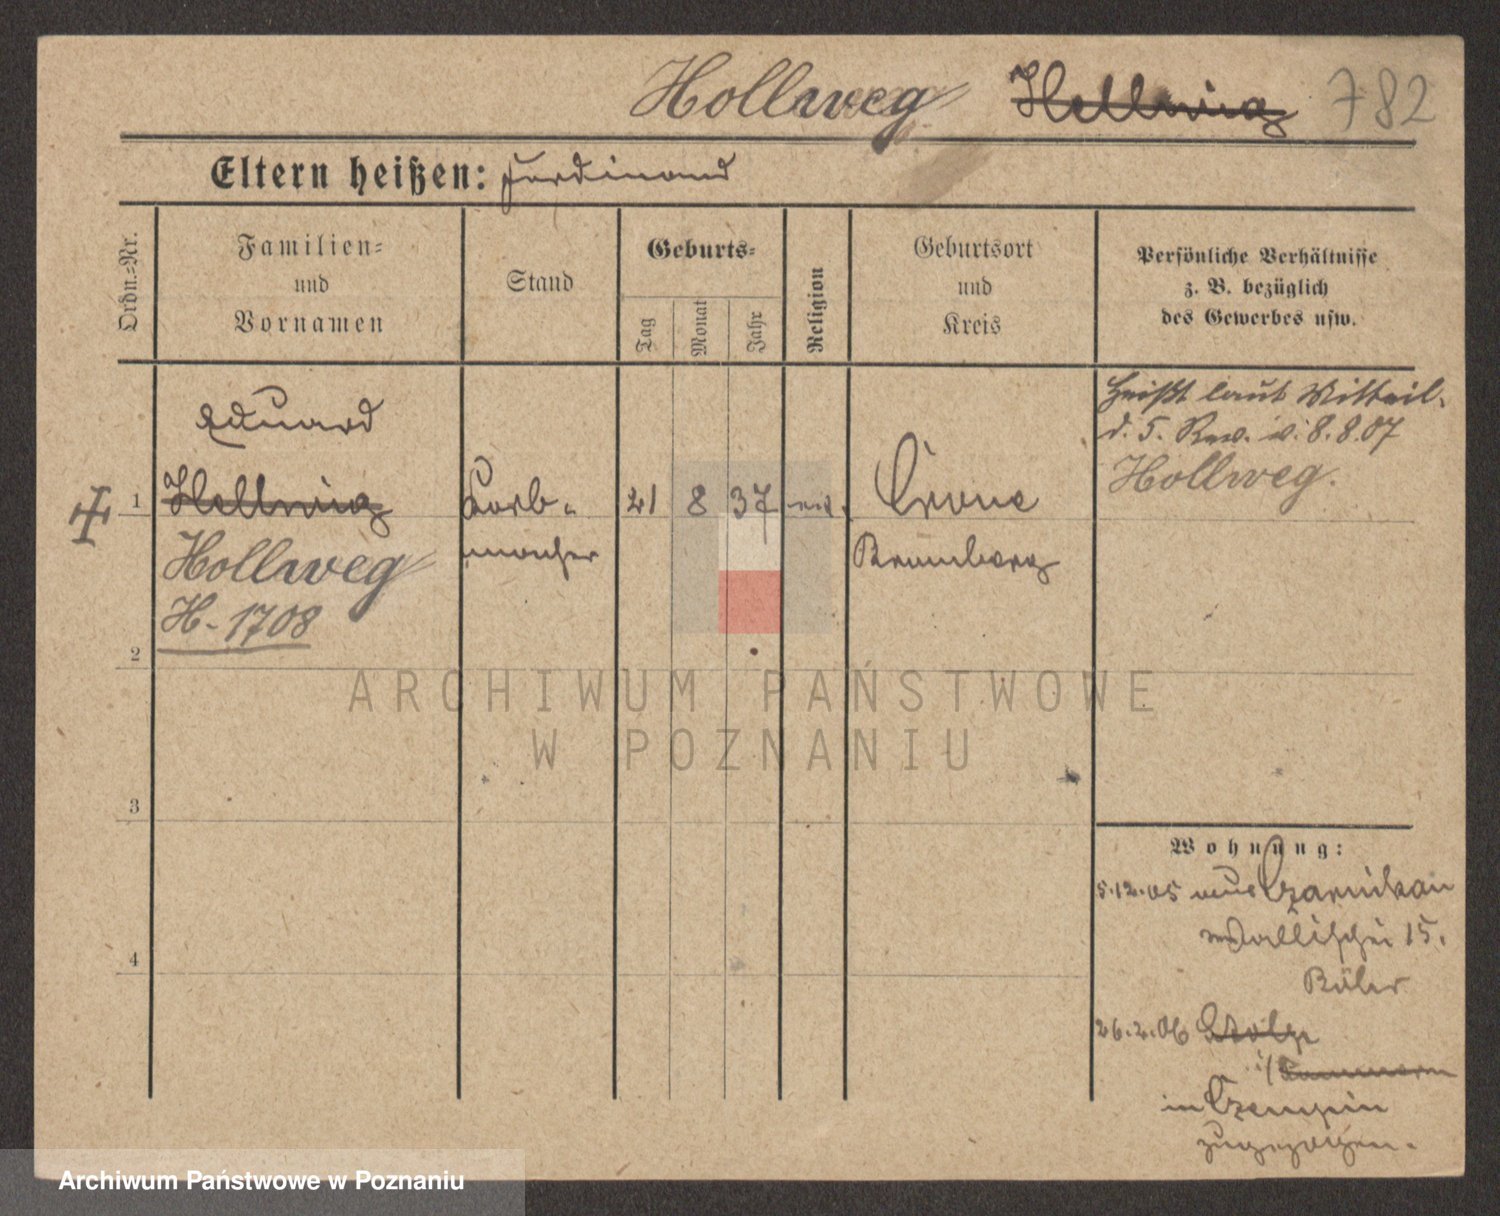 Hollweg Hellwig 782
Eltern heißen: Ferdinand
Ordn.=Nr.
Familien=
und
Vornamen
Stand
Geburts=
Tag
Monat
Jahr
Religion
Geburtsort
und
Kreis
Persönliche Verhältnisse
z. B. bezüglich
des Gewerbes usw.
Eduard
1 Hellwig
Hollweg
H-1708
Korb-
macher
21 8 37
Crone
Bromberg
heißt laut Mitteil.
d. 5. Rev. v. 8.8.07
Hollweg.
2
3
4
Wohnung:
5.12.05 aus Czarnikau
Wallischei 15.
26.2.06 Stolp
i/ Pommern
in Czempin
zugezogen.
ARCHIWUM PAŃSTWOWE
W POZNANIU
Archiwum Państwowe w Poznaniu